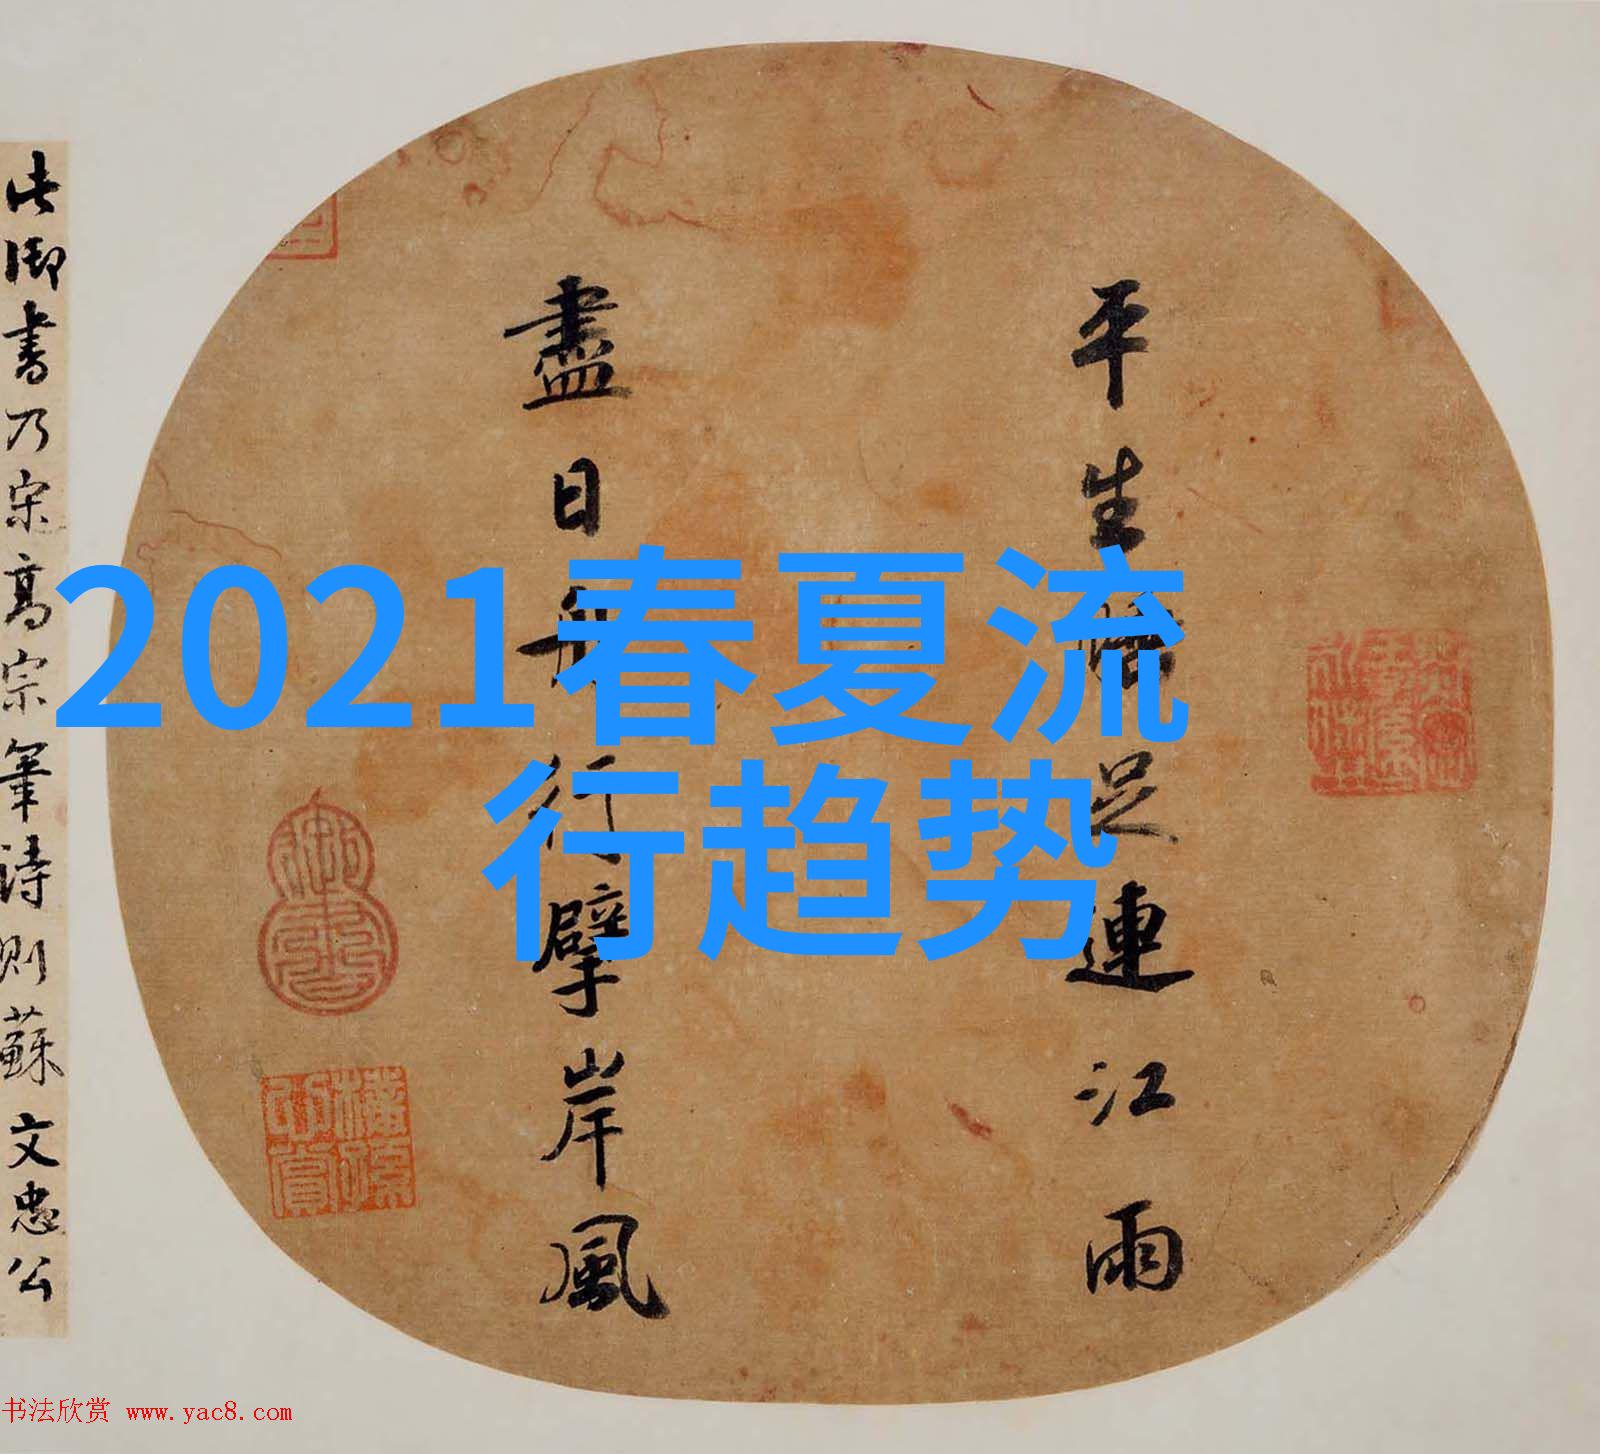 2021春夏流
行趋势
平生足連江雨
盡日舟行擘岸風
此御書乃宋髙宗筆詩則蘇文忠公
书法欣赏 www.yac8.com